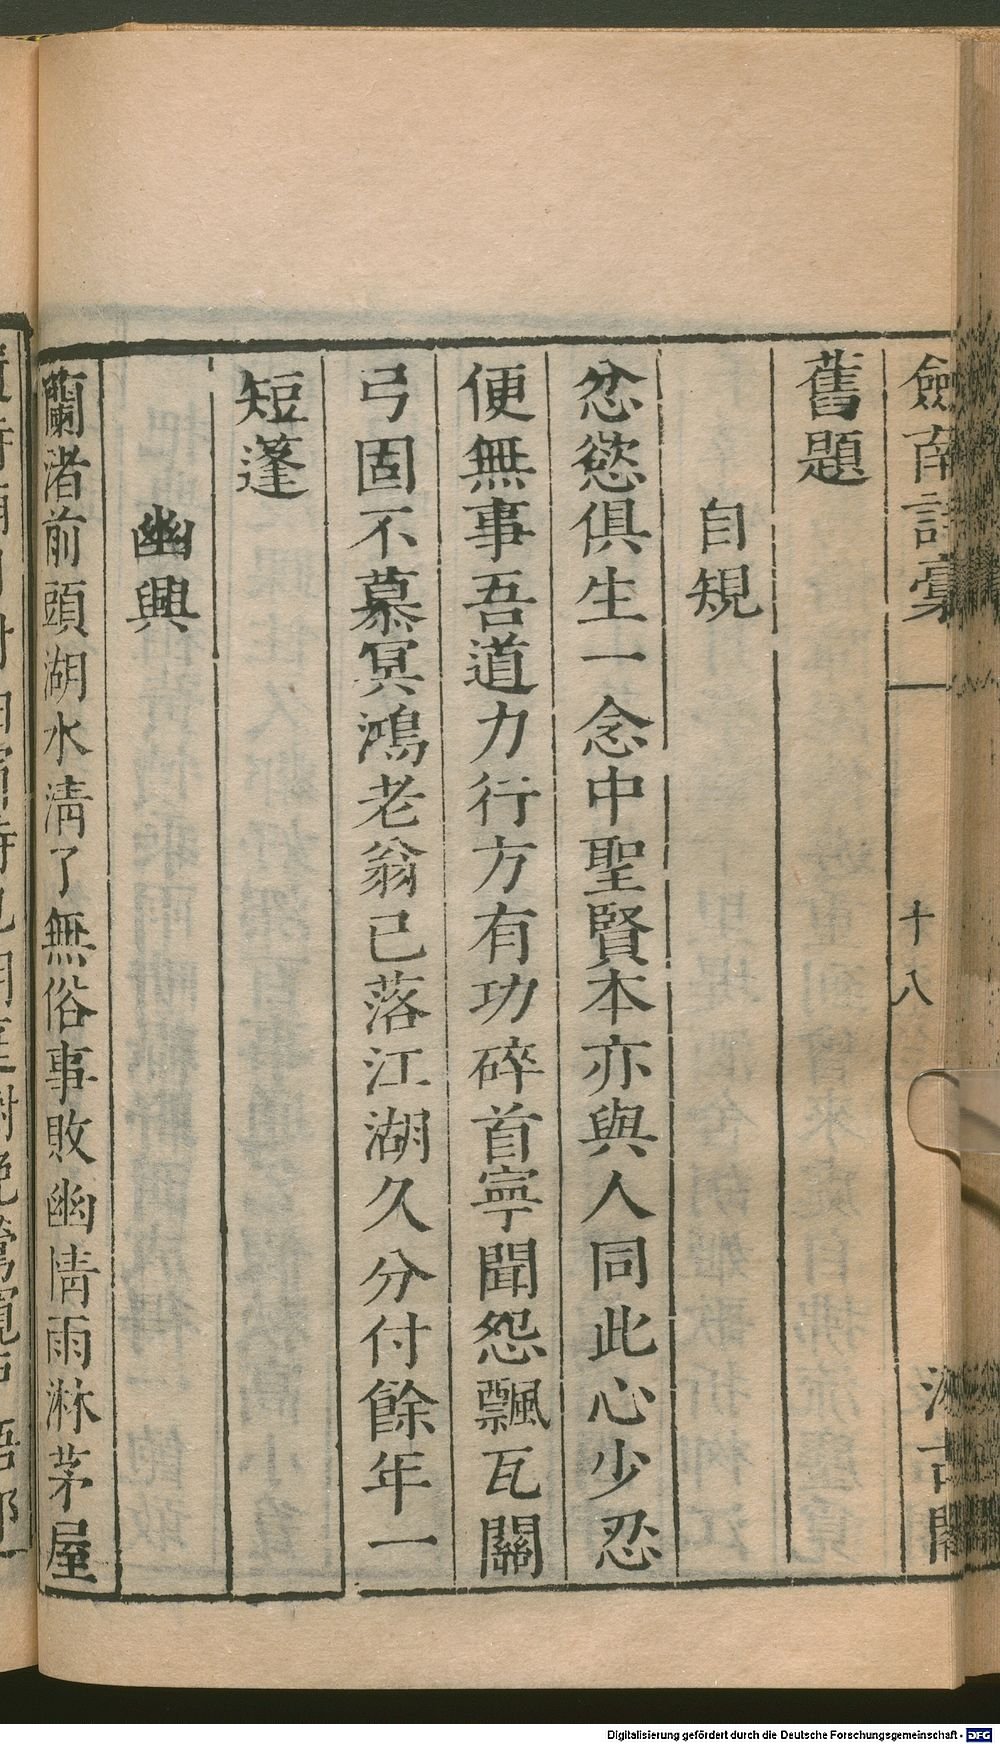 劔南詩稾
十八
汲古閣
舊題
自規
忿慾俱生一念中聖賢本亦與人同此心少忍
便無事吾道力行方有功碎首寧聞怨飄瓦關
弓固不慕冥鴻老翁已落江湖久分付餘年一
短蓬
幽興
蘭渚前頭湖水淸了無俗事敗幽情雨淋茅屋
Digitalisierung gefördert durch die Deutsche Forschungsgemeinschaft - DFG